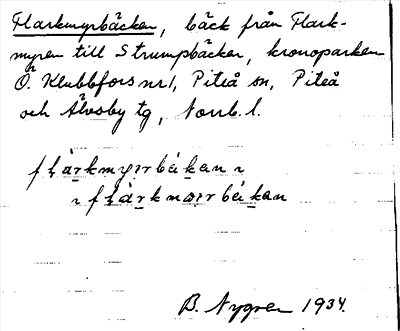 Flarkmyrbäcken, bäck från Flark-
myren till Strumpbäcken, kronoparken
Ö. Klubbfors nr1, Piteå sn, Piteå
och Älvsby tg, Norrb. l.
flärkmyrbäkan
flärkmyrbäkan
B. Nygren 1934.